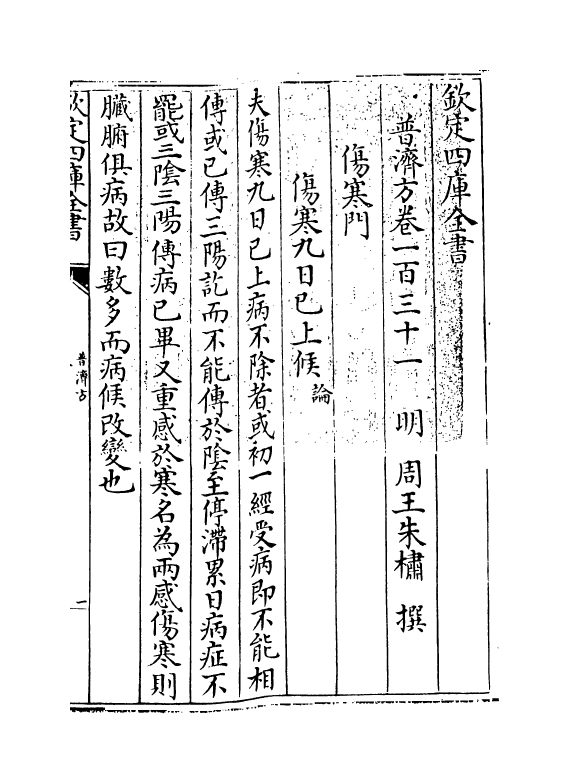 欽定四庫全書
普濟方卷一百三十一　明　周王朱橚　撰
傷寒門
傷寒九日已上候論
夫傷寒九日已上病不除者或初一經受病即不能相
傳或已傳三陽訖而不能傳於陰至停滯累日病症不
罷或三陰三陽傳病已畢又重感於寒名為兩感傷寒則
臟腑俱病故曰數多而病候改變也
欽定四庫全書
普濟方
一